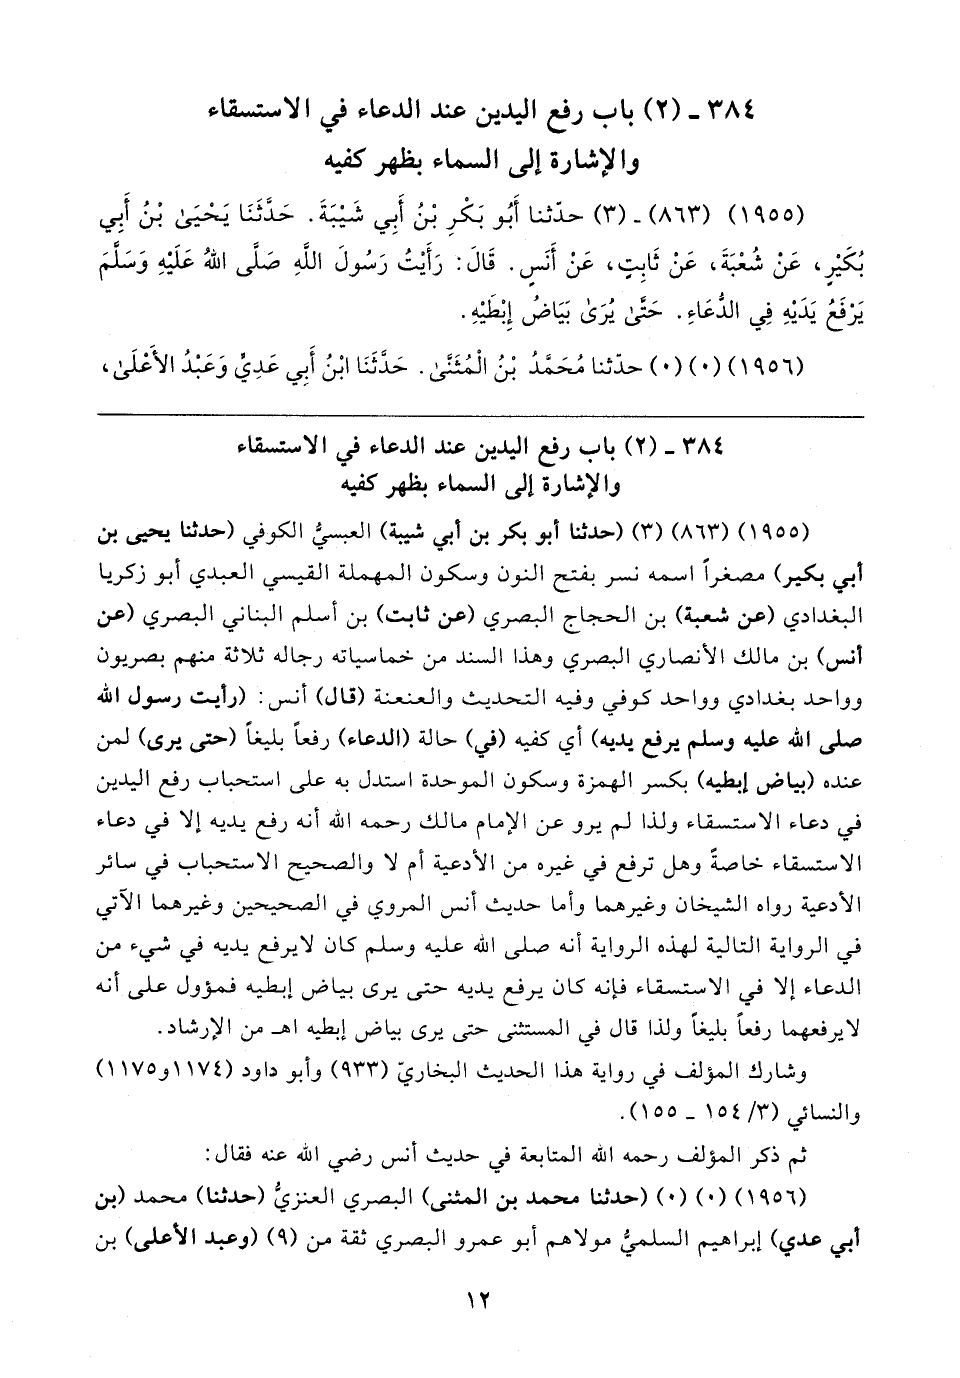 ٣٨٤ ـ (٢) باب رفع اليدين عند الدعاء في الاستسقاء
والإشارة إلى السماء بظهر كفيه
(١٩٥٥) (٨٦٣) ـ (٣) حدّثنا أَبُو بَكْرِ بْنُ أَبِي شَيْبَةَ. حَدَّثَنَا يَحْيَىٰ بْنُ أَبِي
بُكَيْرٍ، عَنْ شُعْبَةَ، عَنْ ثَابِتٍ، عَنْ أَنَسٍ. قَالَ: رَأَيْتُ رَسُولَ اللَّهِ صَلَّى اللهُ عَلَيْهِ وَسَلَّمَ
يَرْفَعُ يَدَيْهِ فِي الدُّعَاءِ. حَتَّىٰ يُرَىٰ بَيَاضُ إِبْطَيْهِ.
(١٩٥٦) (٠) (٠) حدّثنا مُحَمَّدُ بْنُ الْمُثَنَّىٰ. حَدَّثَنَا ابْنُ أَبِي عَدِيٍّ وَعَبْدُ الأَعْلَىٰ،
٣٨٤ ـ (٢) باب رفع اليدين عند الدعاء في الاستسقاء
والإشارة إلى السماء بظهر كفيه
(١٩٥٥) (٨٦٣) (٣) (حدثنا أبو بكر بن أبي شيبة) العبسيُّ الكوفي (حدثنا يحيى بن
أبي بكير) مصغراً اسمه نسر بفتح النون وسكون المهملة القيسي العبدي أبو زكريا
البغدادي (عن شعبة) بن الحجاج البصري (عن ثابت) بن أسلم البناني البصري (عن
أنس) بن مالك الأنصاري البصري وهذا السند من خماسياته رجاله ثلاثة منهم بصريون
وواحد بغدادي وواحد كوفي وفيه التحديث والعنعنة (قال) أنس: (رأيت رسول الله
صلى الله عليه وسلم يرفع يديه) أي كفيه (في) حالة (الدعاء) رفعاً بليغاً (حتى يرى) لمن
عنده (بياض إبطيه) بكسر الهمزة وسكون الموحدة استدل به على استحباب رفع اليدين
في دعاء الاستسقاء ولذا لم يرو عن الإمام مالك رحمه الله أنه رفع يديه إلا في دعاء
الاستسقاء خاصةً وهل ترفع في غيره من الأدعية أم لا والصحيح الاستحباب في سائر
الأدعية رواه الشيخان وغيرهما وأما حديث أنس المروي في الصحيحين وغيرهما الآتي
في الرواية التالية لهذه الرواية أنه صلى الله عليه وسلم كان لايرفع يديه في شيء من
الدعاء إلا في الاستسقاء فإنه كان يرفع يديه حتى يرى بياض إبطيه فمؤول على أنه
لايرفعهما رفعاً بليغاً ولذا قال في المستثنى حتى يرى بياض إبطيه اهـ من الإرشاد.
وشارك المؤلف في رواية هذا الحديث البخاريّ (٩٣٣) وأبو داود (١١٧٤و١١٧٥)
والنسائي (٣/ ١٥٤ ـ ١٥٥).
ثم ذكر المؤلف رحمه الله المتابعة في حديث أنس رضي الله عنه فقال:
(١٩٥٦) (٠) (٠) (حدثنا محمد بن المثنى) البصري العنزيُّ (حدثنا) محمد (بن
أبي عدي) إبراهيم السلميُّ مولاهم أبو عمرو البصري ثقة من (٩) (وعبد الأعلى) بن
١٢